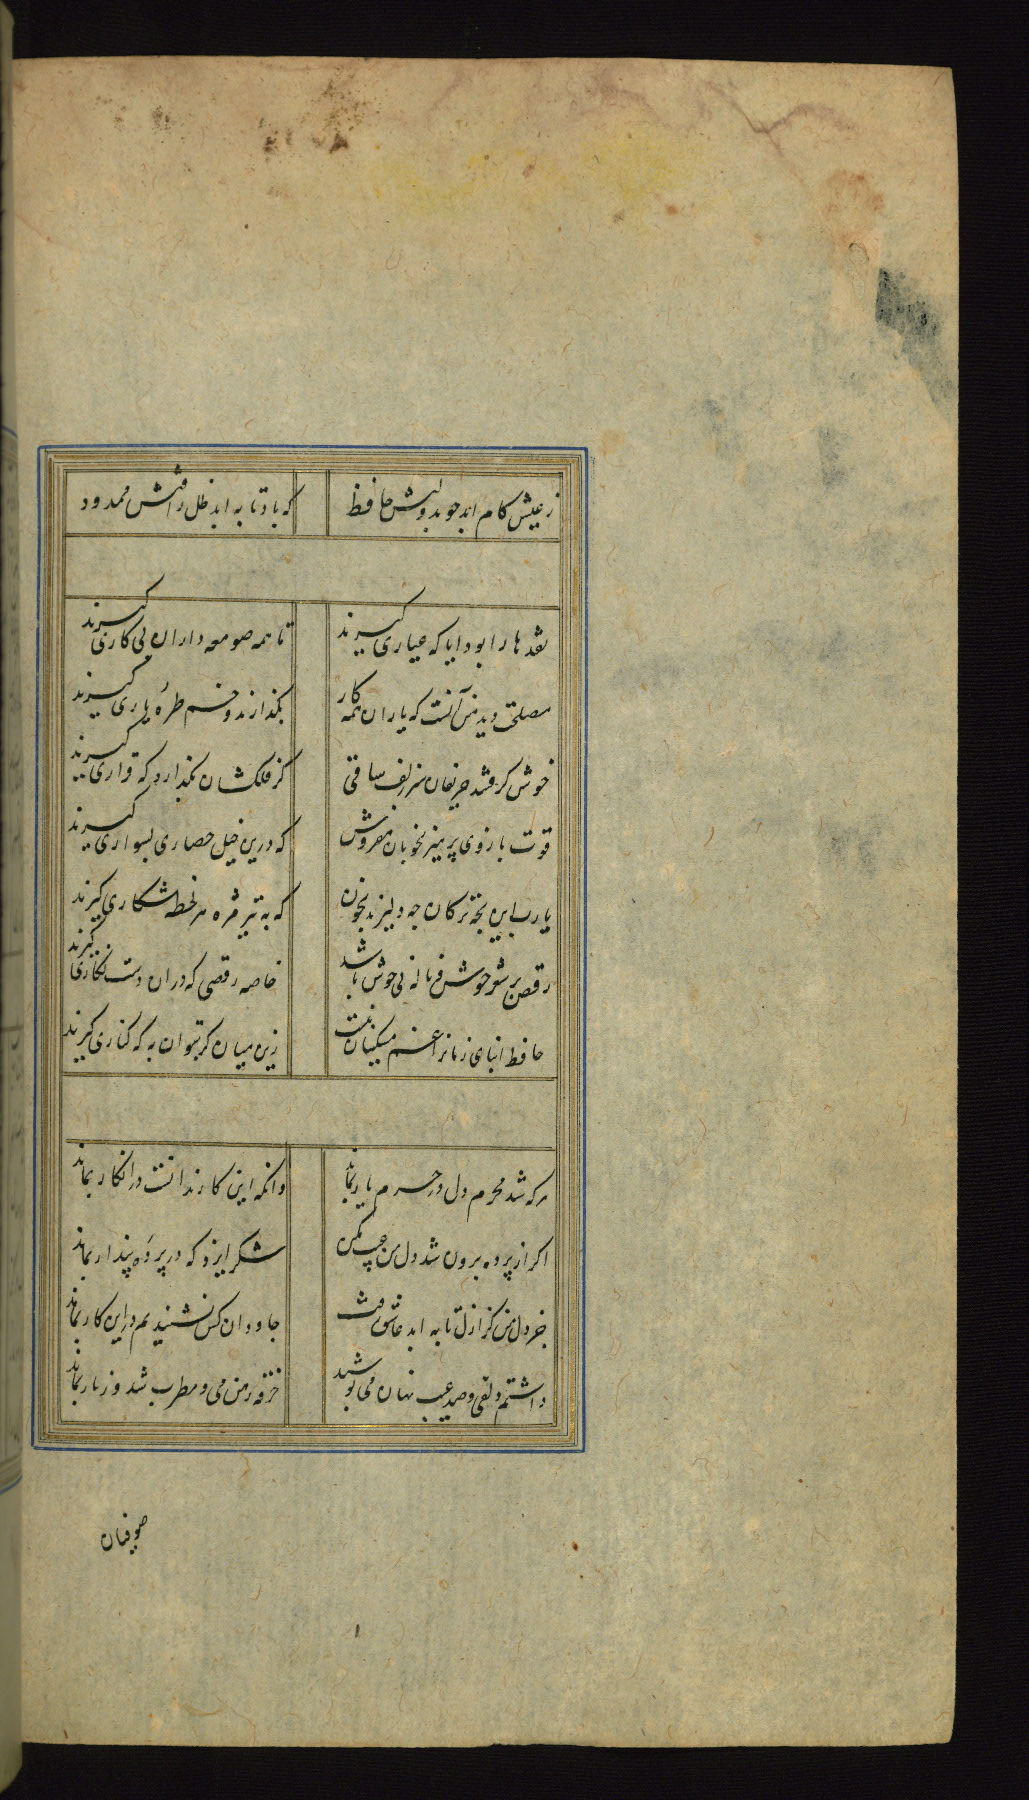 ز عیش کام ابد جوید حافظ که باد تا به ابد ظل رافتش ممدود
نقدها را بود آیا که عیاری گیرند تا همه صومعه داران پی کاری گیرند
مصلحت دید من آنست که یاران همه کار بگذارند و خم طره یاری گیرند
خوش گرفتند حریفان سر زلف ساقی گر فلکشان بگذارد که قراری گیرند
قوت بازوی پرهیز بخوبان مفروش که درین خیل حصاری بسواری گیرند
یارب این بچه ترکان چه دلیرند بخون که به تیر مژه هر لحظه شکاری گیرند
رقص بر شعر خوش و ناله نی خوش باشد خاصه رقصی که در آن دست نگاری گیرند
حافظ ابنای زمانرا غم مسکینان نیست زین میان گر بتوان به که کناری گیرند
هر که شد محرم دل در حرم یار بماند وانکه این کار ندانست در انکار بماند
اگر از پرده برون شد دل من عیب مکن شکر ایزد که در پرده پندار بماند
جز دل من کز ازل تا به ابد عاشق رفت جاودان کس نشنیدیم در این کار بماند
داشتم دلقی و صد عیب نهان می پوشید خرقه رهن می و مطرب شد و زنار بماند
صوفیان